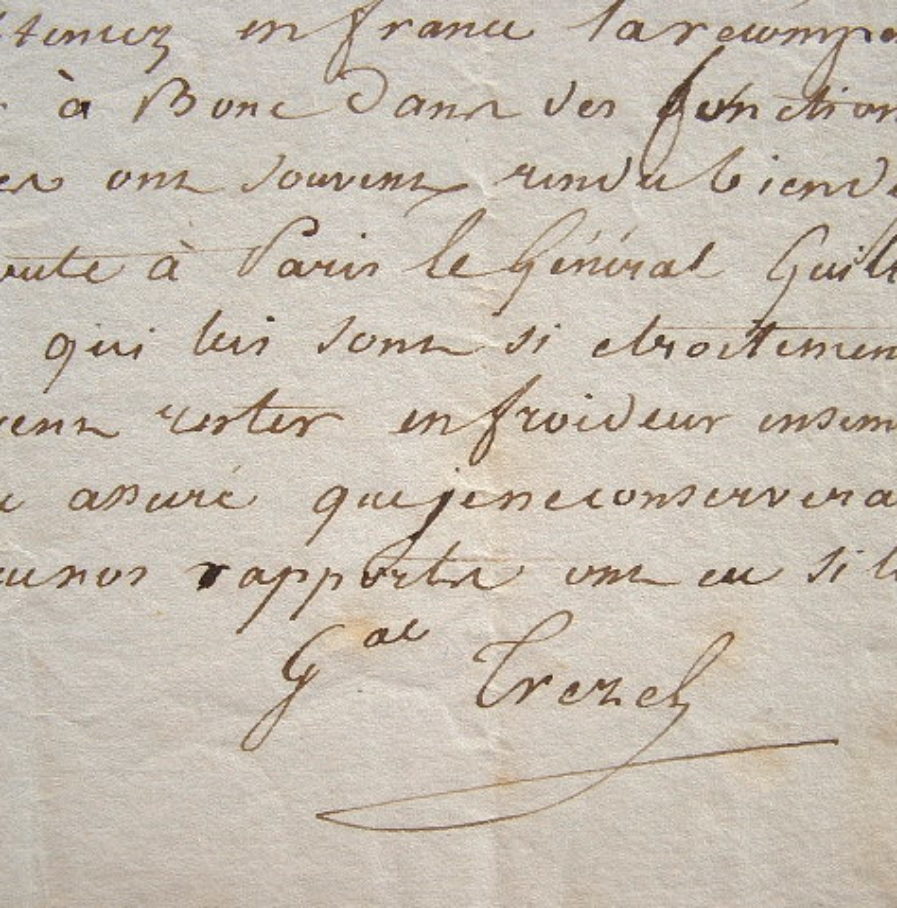 en france la recompe
à Bone dans des fonction
ont souvent rendu bien de
à Paris le Général Guill
qui lui sont si etroitemen
rester en froideur ensem
assuré que je ne conservera
nos rapports ont eu si l
Gal Trezel